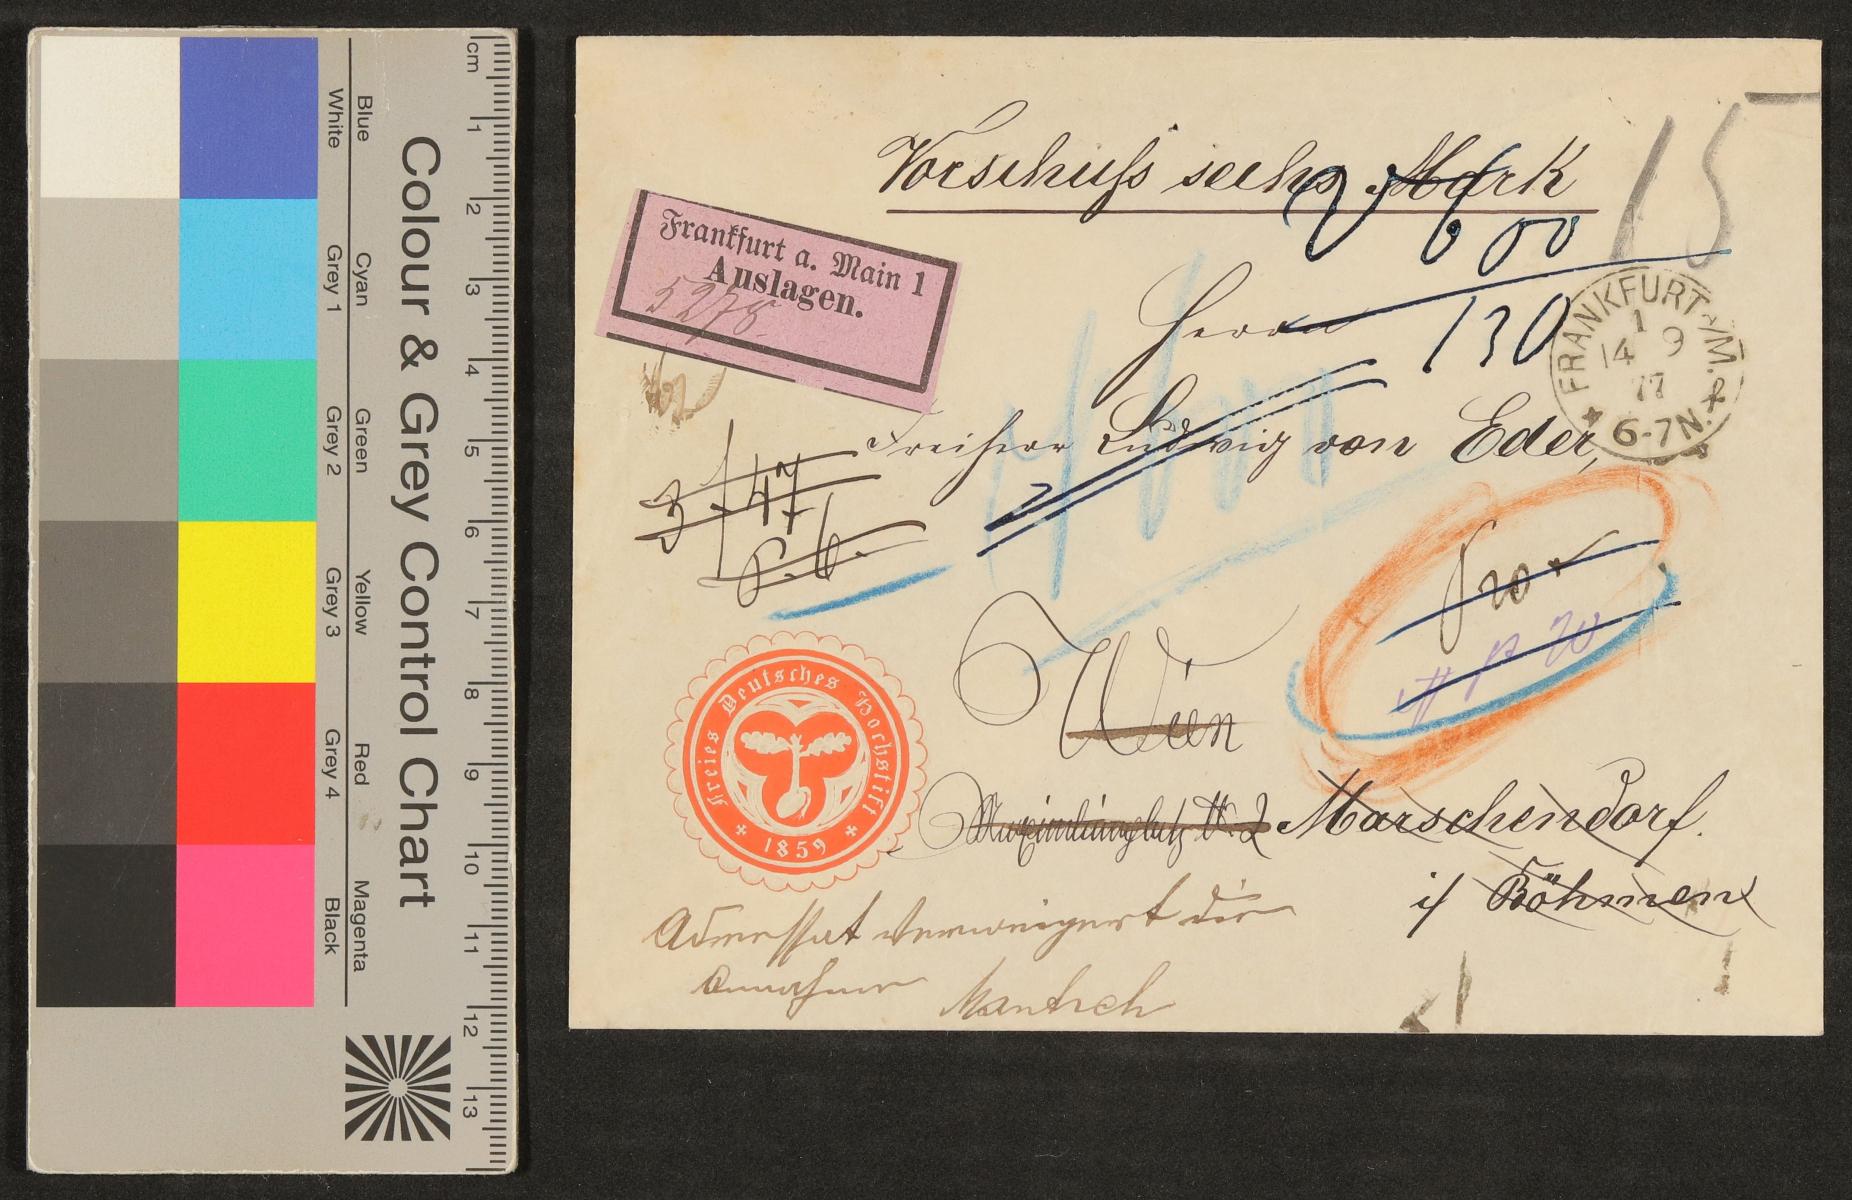 Colour & Grey Control Chart
Blue
White
Cyan
Grey 1
Green
Grey 2
Yellow
Grey 3
Red
Grey 4
Magenta
Black
cm 1 2 3 4 5 6 7 8 9 10 11 12 13
Vorschuß sechs Mark
15
6 00
130
Frankfurt a. Main 1
Auslagen.
5278
FRANKFURT a/M.
1
14 9
77
6-7N.
Herrn
Freiherr Ludwig von Eder,
3 f 47
Wien
Freies Deutsches Hochstift
1859
Marschendorf.
i/ Böhmen
Adressat verweigert die
Annahme